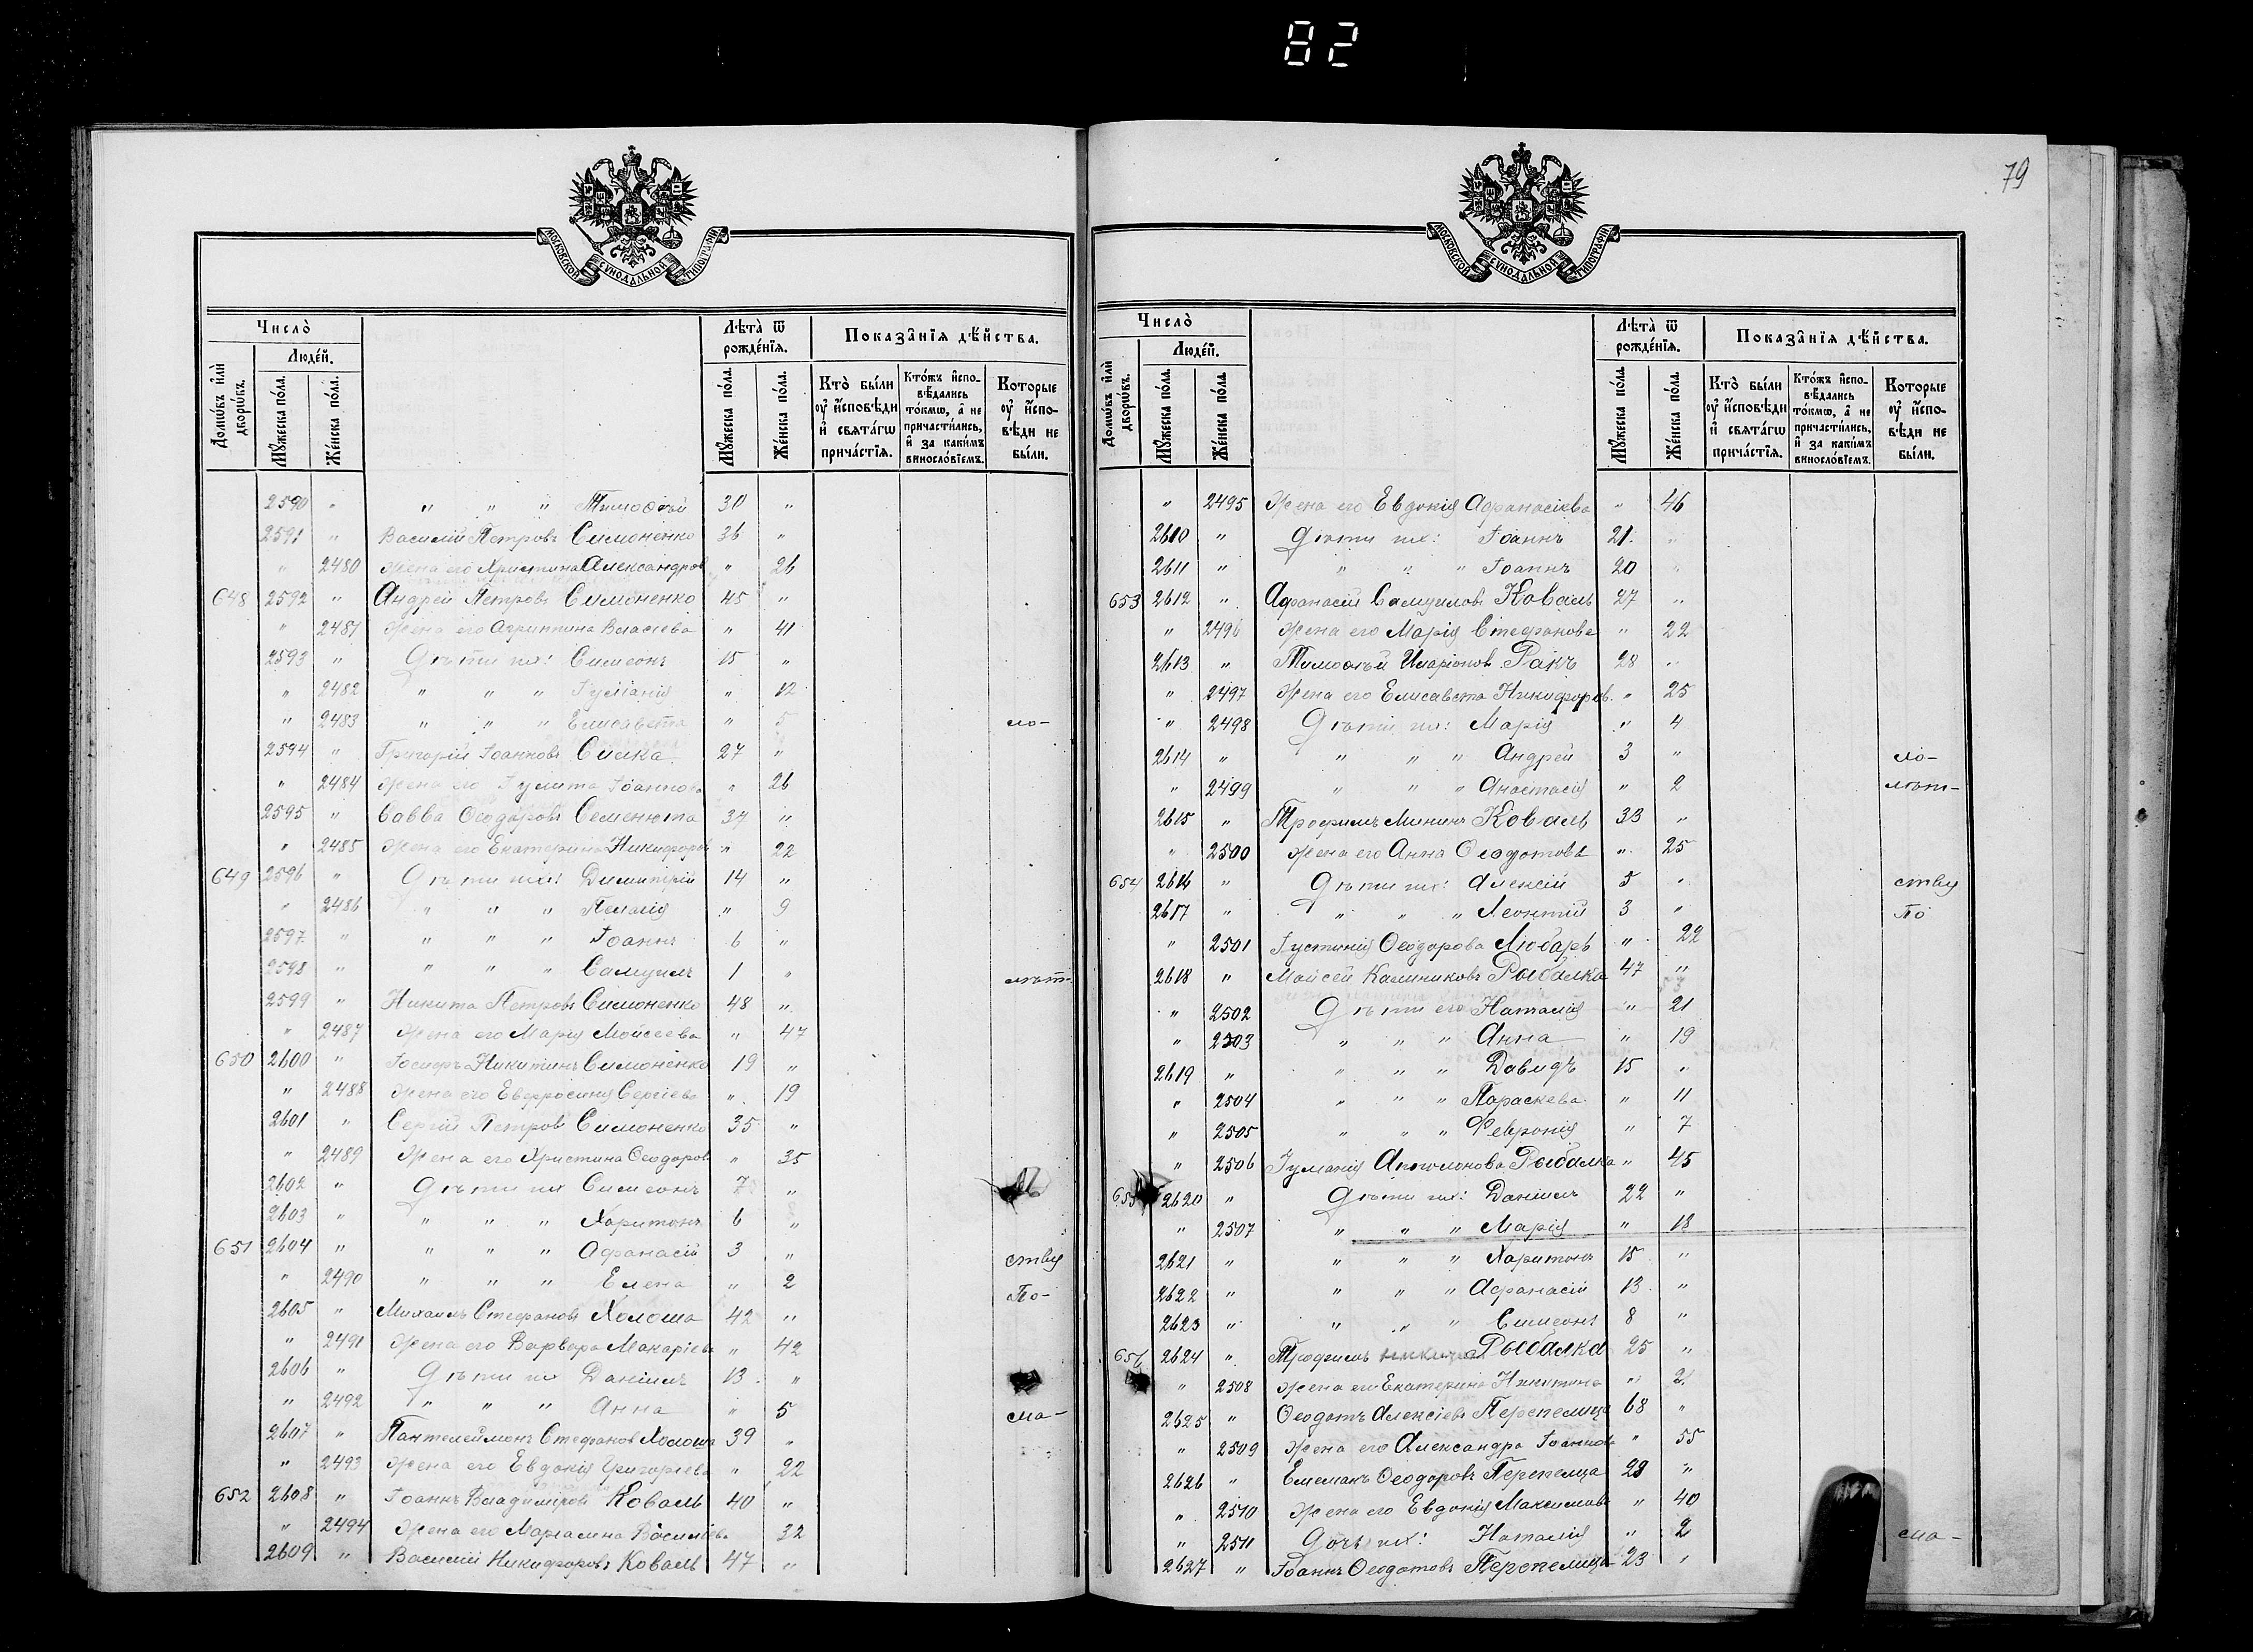 82
79
МОСКОВСКОЙ СѴНОДАЛЬНОЙ ТИПОГРАФІИ
Число̀
Людéй.
Домѡ́въ и҆лѝ дворѡ́въ.
Мꙋ́жеска по́ла.
Же́нска по́ла.
Лѣ́та ѿ рожде́нїѧ.
Мꙋ́жеска по́ла.
Же́нска по́ла.
Показа̂нїѧ дѣ́йства.
Кто̀ бы́ли ᲂу҆ и҆́сповѣди и҆ свѧта́гѡ прича́стїѧ.
Кто́жъ и҆сповѣ́дались то́кмѡ, а҆ не причасти́лись, и҆ за каки́мъ винослові́емъ.
Кото́рые ᲂу҆ и҆́сповѣди не бы́ли.
2590 " " " " Тимофѣй 30 "
2591 " Василій Петровъ Симоненко 36 "
" 2480 жена его Христина Александров " 26
648 2592 " Андрей Петровъ Симоненко 45 "
" 2481 жена его Агрипина Власіева " 41
2593 " Дѣти ихъ: Симеонъ 15 "
" 2482 " " " Іуліанія " 12
" 2483 " " " Елисавета " 5 ло-
2594 " Григорій Іоанновъ Сиека 27 "
" 2484 жена его Іулита Іоаннова " 26
2595 " Савва Ѳеодоровъ Семенюта 37 "
" 2485 жена его Екатерина Никифоров " 22
649 2596 " Дѣти ихъ: Димитрій 14 "
" 2486 " " " Пелагія " 9
2597 " " " " Іоаннъ 6 "
2598 " " " " Самуилъ 1 " лѣт-
2599 " Никита Петровъ Симоненко 48 "
" 2487 жена его Марія Мойсеева " 47
650 2600 " Іосифъ Никитинъ Симоненко 19 "
" 2488 жена его Евфросинія Сергіева " 19
2601 " Сергій Петровъ Симоненко 35 "
" 2489 жена его Христина Ѳеодоров " 35
2602 " Дѣти ихъ Симеонъ 7 "
2603 " " " " Харитонъ 6 "
651 2604 " " " " Афанасій 3 " ству
" 2490 " " " Елена " 2 По-
2605 " Михаилъ Стефановъ Холоша 42 "
" 2491 жена его Варвара Макаріева " 42
2606 " Дѣти ихъ Даніилъ 13 "
" 2492 " " " Анна " 5 ма-
2607 " Пантелеймонъ Стефановъ Холоша 39 "
" 2493 жена его Евдокія Григоріева " 22
652 2608 " Іоаннъ Владиміровъ Коваль 40 "
" 2494 жена его Василіева 32
2609 " Василій Никифоровъ Коваль 47 "
МОСКОВСКОЙ СѴНОДАЛЬНОЙ ТИПОГРАФІИ
Число̀
Людéй.
Домѡ́въ и҆лѝ дворѡ́въ.
Мꙋ́жеска по́ла.
Же́нска по́ла.
Лѣ́та ѿ рожде́нїѧ.
Мꙋ́жеска по́ла.
Же́нска по́ла.
Показа̂нїѧ дѣ́йства.
Кто̀ бы́ли ᲂу҆ и҆́сповѣди и҆ свѧта́гѡ прича́стїѧ.
Кто́жъ и҆сповѣ́дались то́кмѡ, а҆ не причасти́лись, и҆ за каки́мъ винослові́емъ.
Кото́рые ᲂу҆ и҆́сповѣди не бы́ли.
" 2495 Жена его Евдокія Афанасіева " 46
2610 " Дѣти ихъ: Іоаннъ 21 "
2611 " " " " Іоаннъ 20 "
653 2612 " Афанасій Самуиловъ Коваль 27 "
" 2496 жена его Марія Стефанова " 22
2613 " Тимофѣй Иларіонов Ракъ 28 "
" 2497 жена его Елисавета Никифоров. " 25
" 2498 Дѣти ихъ: Марія " 4
2614 " " " " Андрей 3 " ло-
" 2499 " " " Анастасія " 2 лѣт-
2615 " Трофимъ Мининъ Коваль 33 "
" 2500 жена его Анна Ѳеодотова " 25
654 2616 " Дѣти ихъ: Алексій 5 " ству
2617 " " " " Леонтій 3 " По
" 2501 Іустинія Ѳеодорова Любарь " 22
2618 " Мойсей Калиниковъ Рыбалка 47 "
" 2502 Дѣти его Наталія " 21
" 2503 " " " Анна " 19
2619 " " " " Давидъ 15 "
" 2504 " " " Параскева " 11
" 2505 " " " Февронія " 7
" 2506 Іуліанія Аполонова Рыбалка " 45
655 2620 " Дѣти ихъ: Даніилъ 22 "
" 2507 " " " Марія " 18
2621 " " " " Харитонъ 15 "
2622 " " " " Афанасій 13 "
2623 " " " " Симеонъ 8 "
656 2624 " Трофимъ Рыбалка 25 "
" 2508 жена его Екатерина Никитина " 21
2625 " Ѳеодотъ Алексіевъ Перепелица 68 "
" 2509 жена его Александра Іоаннова " 55
2626 " Емеліанъ Ѳеодоровъ Перепелица 23 "
" 2510 жена его Евдокія Максимова " 40
" 2511 Дочь ихъ: Наталія " 2 ма-
2627 " Іоаннъ Ѳеодотовъ Перепелица 23 "